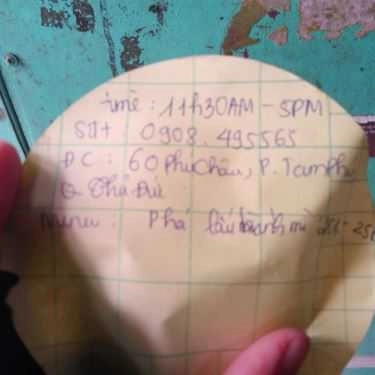 time : 11h30AM - 5PM
SĐt 0908.495565
ĐC : 60 Phú Châu, P. Tam Phú
Q Thủ Đức
Menu : Phá lấu bánh mì